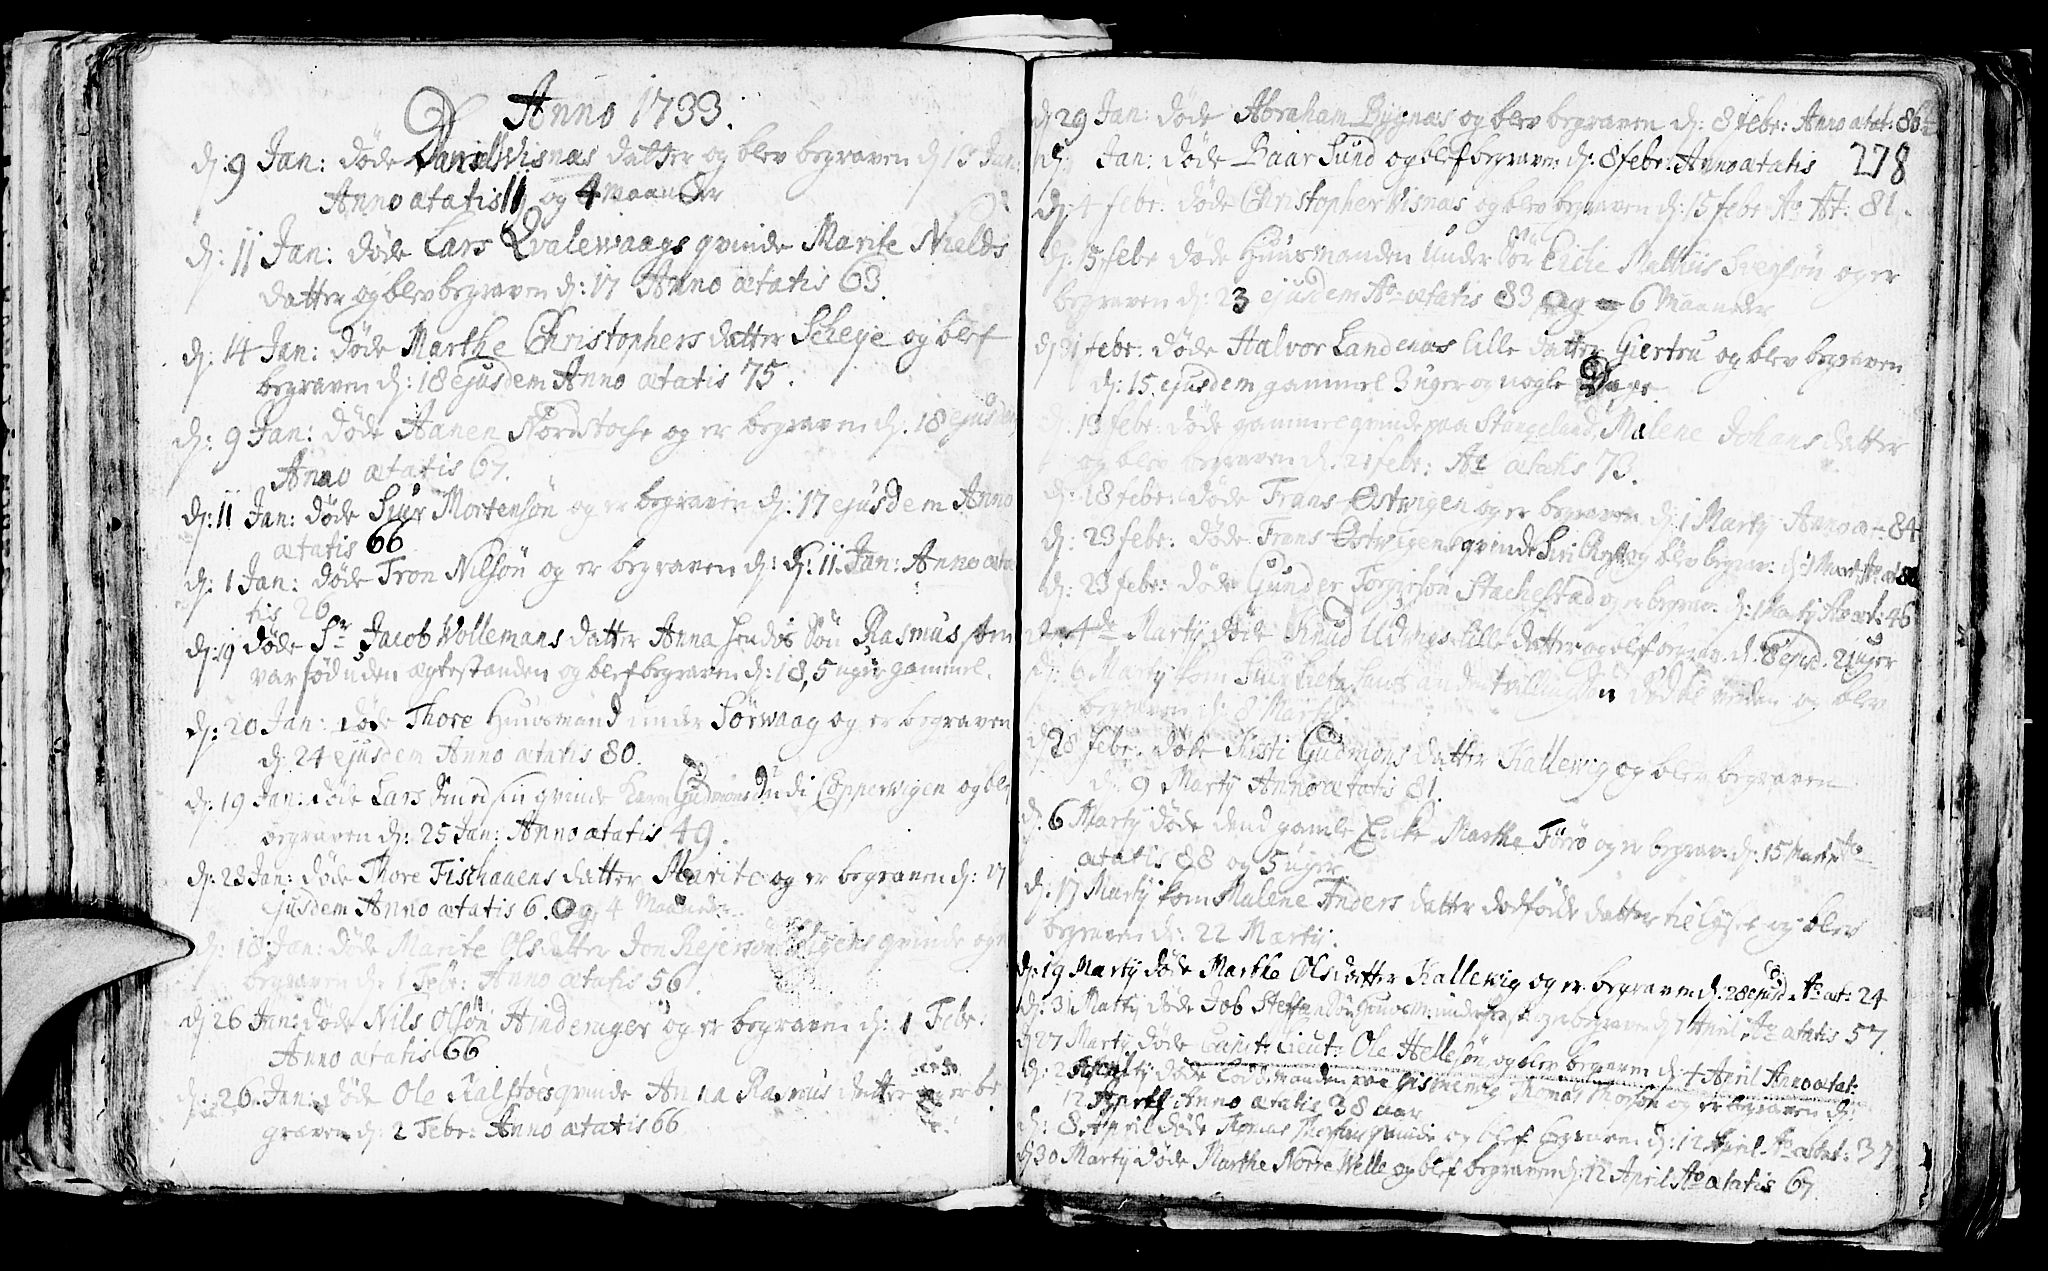 Anno 1733.
d: 9 Jan: døde Daniel Visnæs datter og blev begraven d 15 Jan:
Anno ætatis 11 og 4 maaneder
d: 11 Jan: døde Lars Qvalewaags qvinde Marite Nields
datter og blev begraven d: 17 Anno ætatis 63.
d: 14 Jan: døde Marthe Christophers datter Scheje og blef
begraven d: 18 ejusdem Anno ætatis 75.
d: 9 Jan: døde Aanen Nordstoche og er begraven d. 18 ejusdem
Anno ætatis 67.
d: 11 Jan: døde Siur Mortensøn og er begraven d: 17 ejusdem Anno
ætatis 66
d: 1 Jan: døde Tron Nilsøn og er begraven d: d: 11 Jan: Anno æta
tis 26
d: 19 døde Sr Jacob Wollemans datter Anna hendes Søn Rasmus som
var fød uden ægtestanden og blef begraven d: 18, 5 uger gammel.
d: 20 Jan: døde Thore Huusmand under Sørwaag og er begraven
d: 24 ejusdem Anno ætatis 80.
d: 19 Jan: døde Lars Smed sin qvinde Karn Gudmonds di Coppervigen og blef
begraven d: 25 Jan: Anno ætatis 49.
d: 28 Jan: døde Thore Fischaaens datter Marite og er begraven d: 17
ejusdem Anno ætatis 6. Og 4 Maaneder.
d: 18 Jan: døde Marite Olsdatter Jon Rejersøn qvinde og er
begraven d: 1 Febr: Anno ætatis 56.
d: 26 Jan: døde Nils Olsøn Hinderager og er begraven d: 1 Febr:
Anno ætatis 66
d: 26 Jan: døde Ole Kalstøes qvinde Anna Rasmus datter og er be
graven d: 2 Febr: Anno ætatis 66
d 29 Jan: døde Abraham Bygnæs og blev begraven d: 8 febr: Anno ætat: 86
d: Jan: døde Baar Sund og blef begraven d: 8 febr: Anno ætatis 278
d: 4 febr: døde Christopher Visnæs og blev begraven d: 15 febr Ao Æt: 81.
d: 15 febr døde Huusmanden under Sør Mathiis Svensøn og er
begraven d: 23 ejusdem Ao ætatis 83 og 6 Maaneder
d: febr: døde Halvor Landenæs lille datter Giertru og blev begraven
d: 15 ejusdem gammel 3 uger og nogle Dage.
d: 13 febr: døde gammel qvinde paa Stangeland, Malene Johans datter
og blev begraven d. 21 febr: Ao ætatis 73.
d: 18 febr: døde Frans Østvigen og er begraven d: 1 Martij Anno æt: 84
d: 23 febr: døde Frans Østvigens qvinde Siri og blev begrav: d: 1 Mart: Ao æt 80
d: 23 febr: døde Gunder Torgiersøn Stachestad og er begrav: d: 1 Martij Ao æt: 46
den 4de Martij døde Knud Udnæs lille datter og blef begrav. d. 8 ejusd. 2 uger
d: 6 Martij kom anden tvilling Søn død til verden og blev
begraven d: 8 Martij.
d 28 febr: døde Kirsti Gudmons datter Kallevig og blev begraven
d: 9 Martij Anno ætatis 81.
d. 6 Martij døde dend gamle Encke Marthe Førrø og er begrav: d: 15 Martij Ao
ætatis 88 og 5 uger
d: 17 Martij kom Malene Anders datter dødfødde datter til lyset og blev
begraven d: 22 Martij.
d: 19 Martij døde Marthe Olsdatter Kallevig og er begraven d: 28 ejusd. Ao æt: 24
d: 31 Martij døde Job Steffensøn og er begraven d: 7 April Ao ætatis 57.
d 27 Martij døde Capit: Lieut: Ole Hellesøn og blev begraven d 4 April Anno ætat:
d: 2 April døde Lodsmanden paa Thomas Thorsøn og er begraven d:
12 April Anno ætatis 38 aar
d: 8 April døde Thomas Thorsøns qvinde og blef begraven d: 12 April Ao ætat: 37
d 30 Martij døde Marthe Norre Welle og blef begraven d: 12 April Ao ætatis 67.